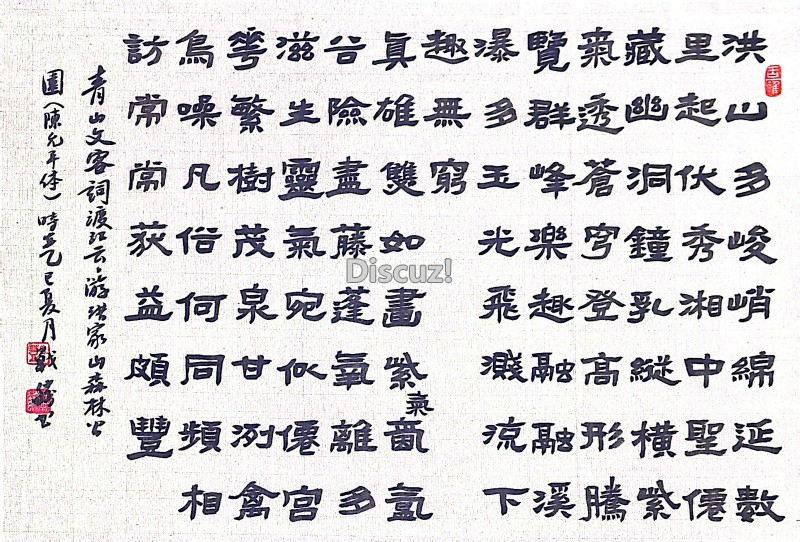 洪山多峻峭綿延數
里起伏秀湘中聖僊
藏幽洞鐘乳縱橫紫
氣透蒼穹登高形騰
覽群峰樂趣融融溪
瀑多玉光飛濺流下
趣無窮
眞雄雙如畫紫氣氤氳
谷險盡藤蓬氧離多
滋生靈氣宛似僊宮
華繁樹茂泉甘冽禽
鳥噪凡俗何同頻相
訪常常荻益頗豐
青山文客詞渡江云·游洪家山森林公
園(陳允平体)時在乙巳夏月书
Discuz!